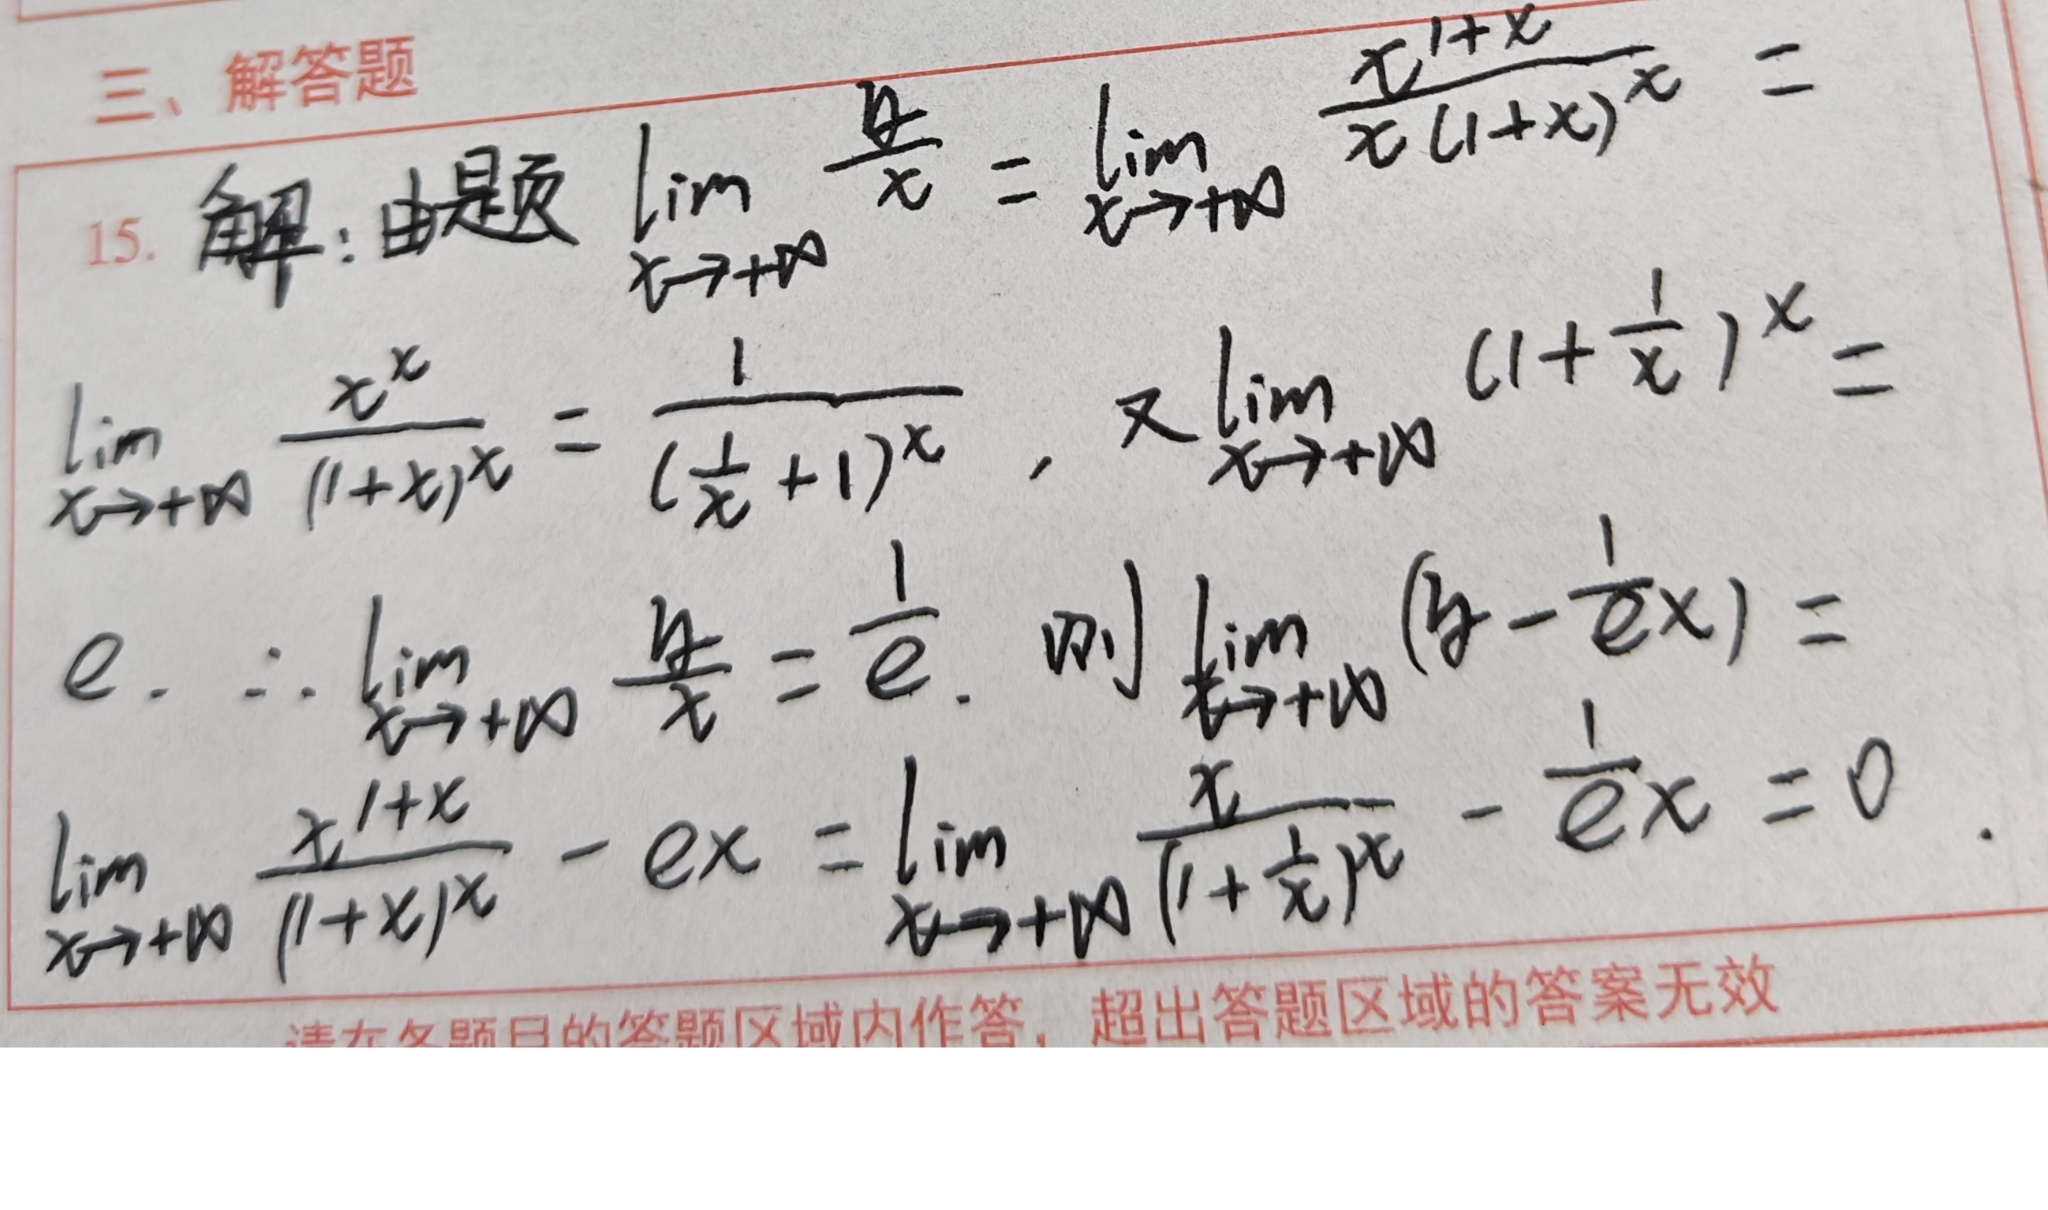 三、解答题
15. 解：由题 lim_{x→+∞} y/x = lim_{x→+∞} x^{1+x}/(x(1+x)^x) =
lim_{x→+∞} x^x/(1+x)^x = 1/(1/x+1)^x , 又 lim_{x→+∞} (1+1/x)^x =
e. ∴ lim_{x→+∞} y/x = 1/e. 则 lim_{x→+∞} (y - 1/e x) =
lim_{x→+∞} x^{1+x}/(1+x)^x - ex = lim_{x→+∞} x/(1+1/x)^x - 1/e x = 0 .
请在各题目的答题区域内作答，超出答题区域的答案无效